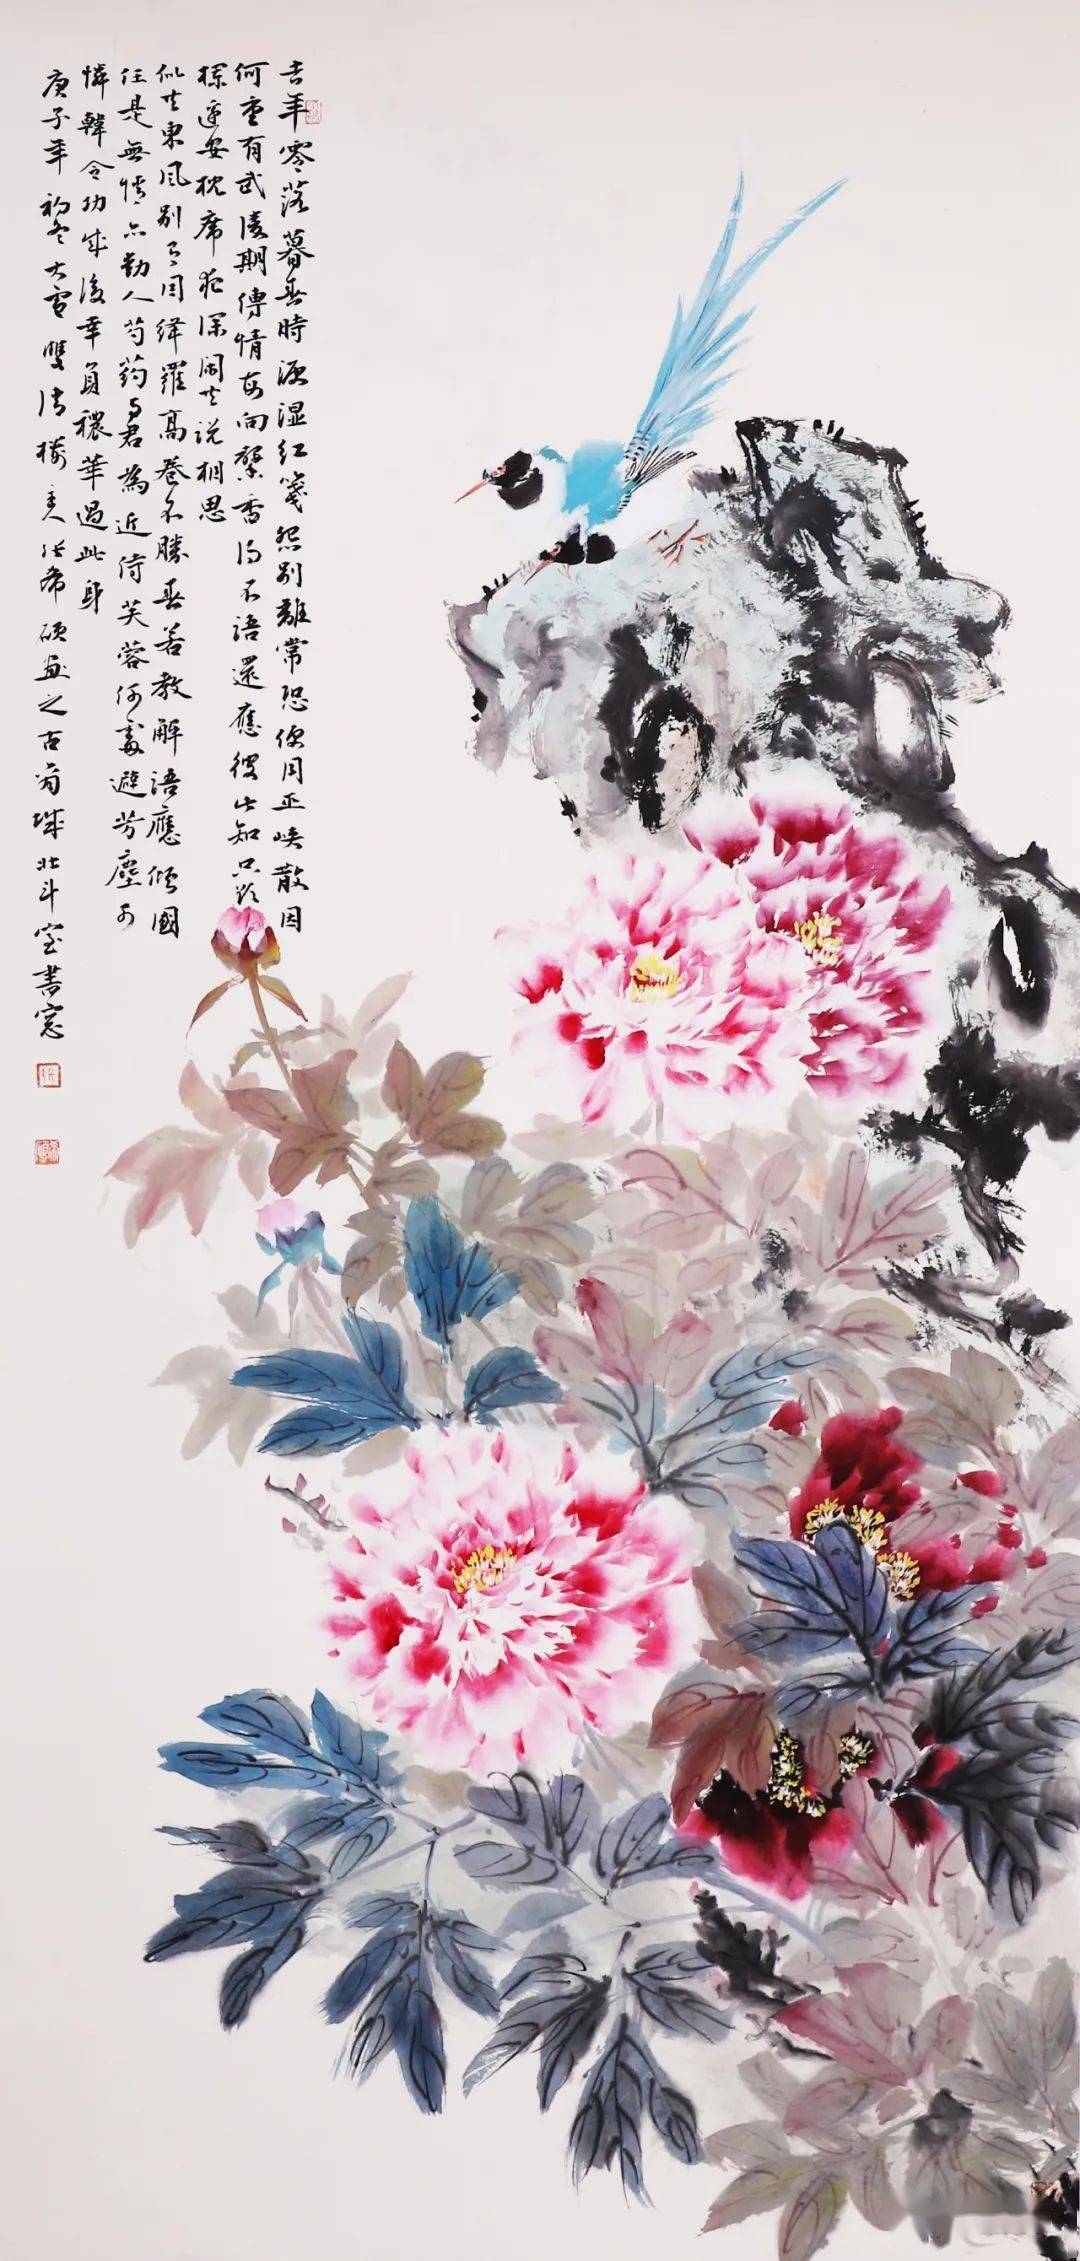 去年零落暮春時淚湿紅箋怨別離常恐便同巫峡散因
何重有武陵期傳情每向馨香得不語還應彼此知只欲
欄邊安枕席夜深閑共説相思
似共東風別有因絳羅高卷不勝春若教解語應傾國
任是無情亦動人芍药与君為近侍芙蓉何處避芳塵可
憐韓令功成後辜負穠華過此身
庚子年初冬大雪雙清樓主人希碩畫之古城北斗室書窓